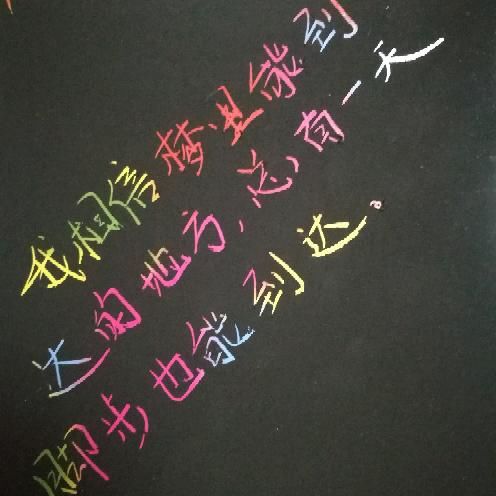 我相信梦里能到
达的地方,总有一天
脚步也能到达。